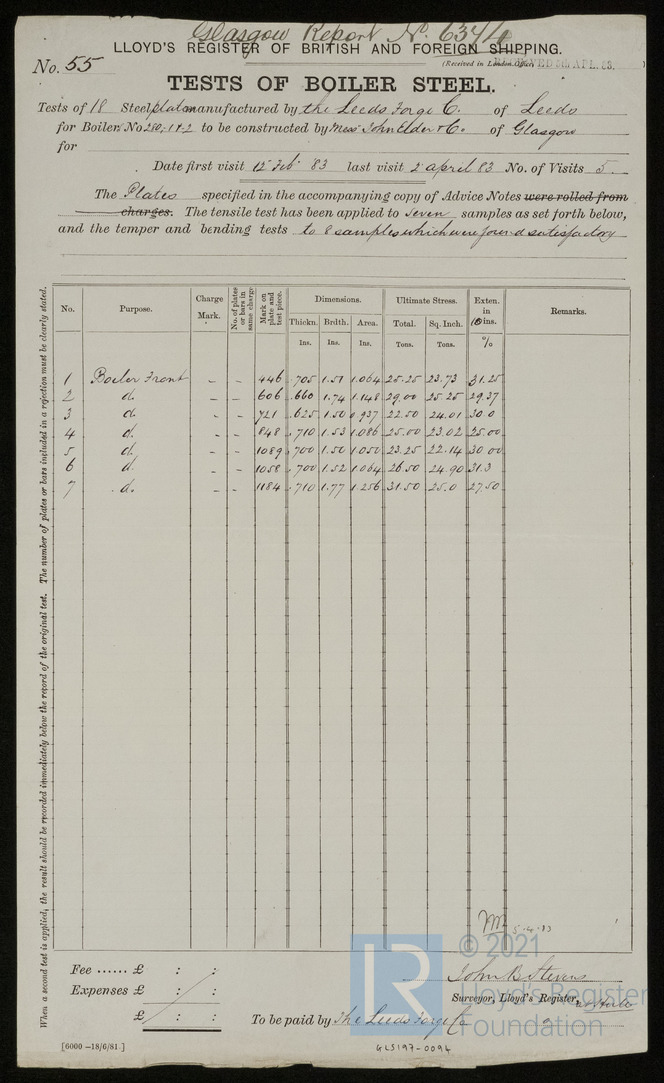 Glasgow Report No. 6344
LLOYD'S REGISTER OF BRITISH AND FOREIGN SHIPPING.
No. 55
(Received in London Office, RECEIVED APL. 83.
TESTS OF BOILER STEEL.
Tests of 18 Steel plates manufactured by the Leeds Forge Co. of Leeds
for Boiler No 280, 1 & 2 to be constructed by Mess John Elder & Co. of Glasgow
for
Date first visit 12 Feb 83 last visit 2 april 83 No. of Visits 5.
The Plates specified in the accompanying copy of Advice Notes were rolled from
charges. The tensile test has been applied to seven samples as set forth below,
and the temper and bending tests to 8 samples which were found satisfactory
When a second test is applied, the result should be recorded immediately below the record of the original test. The number of plates or bars included in a rejection must be clearly stated.
No. Purpose. Charge Mark. No. of plates or bars in same charge Mark on plate and test piece. Dimensions. Ultimate Stress. Exten. in 10 ins. Remarks.
Thickn. Brdth. Area. Total. Sq. Inch.
Ins. Ins. Ins. Tons. Tons. %
1 Boiler Front - - 446 .705 1.51 1.064 25.25 23.73 31.25
2 do. - - 606 .660 1.74 1.148 29.00 25.25 29.37
3 do. - - 721 .625 1.50 .937 22.50 24.01 30.0
4 do. - - 848 .710 1.53 1.086 25.00 23.02 25.00
5 do. - - 1089 .700 1.50 1.050 23.25 22.14 30.00
6 do. - - 1058 .700 1.52 1.064 26.50 24.90 31.3
7 do. - - 1184 .710 1.77 1.256 31.50 25.0 27.50
5-4-83
Fee ...... £ : :
John B. Stevens
Expenses £ : :
Surveyor, Lloyd's Register,
£ : :
To be paid by The Leeds Forge Co
[6000 -18/6/81]
GLS197-0094
LR
© 2021
Lloyd's Register
Foundation